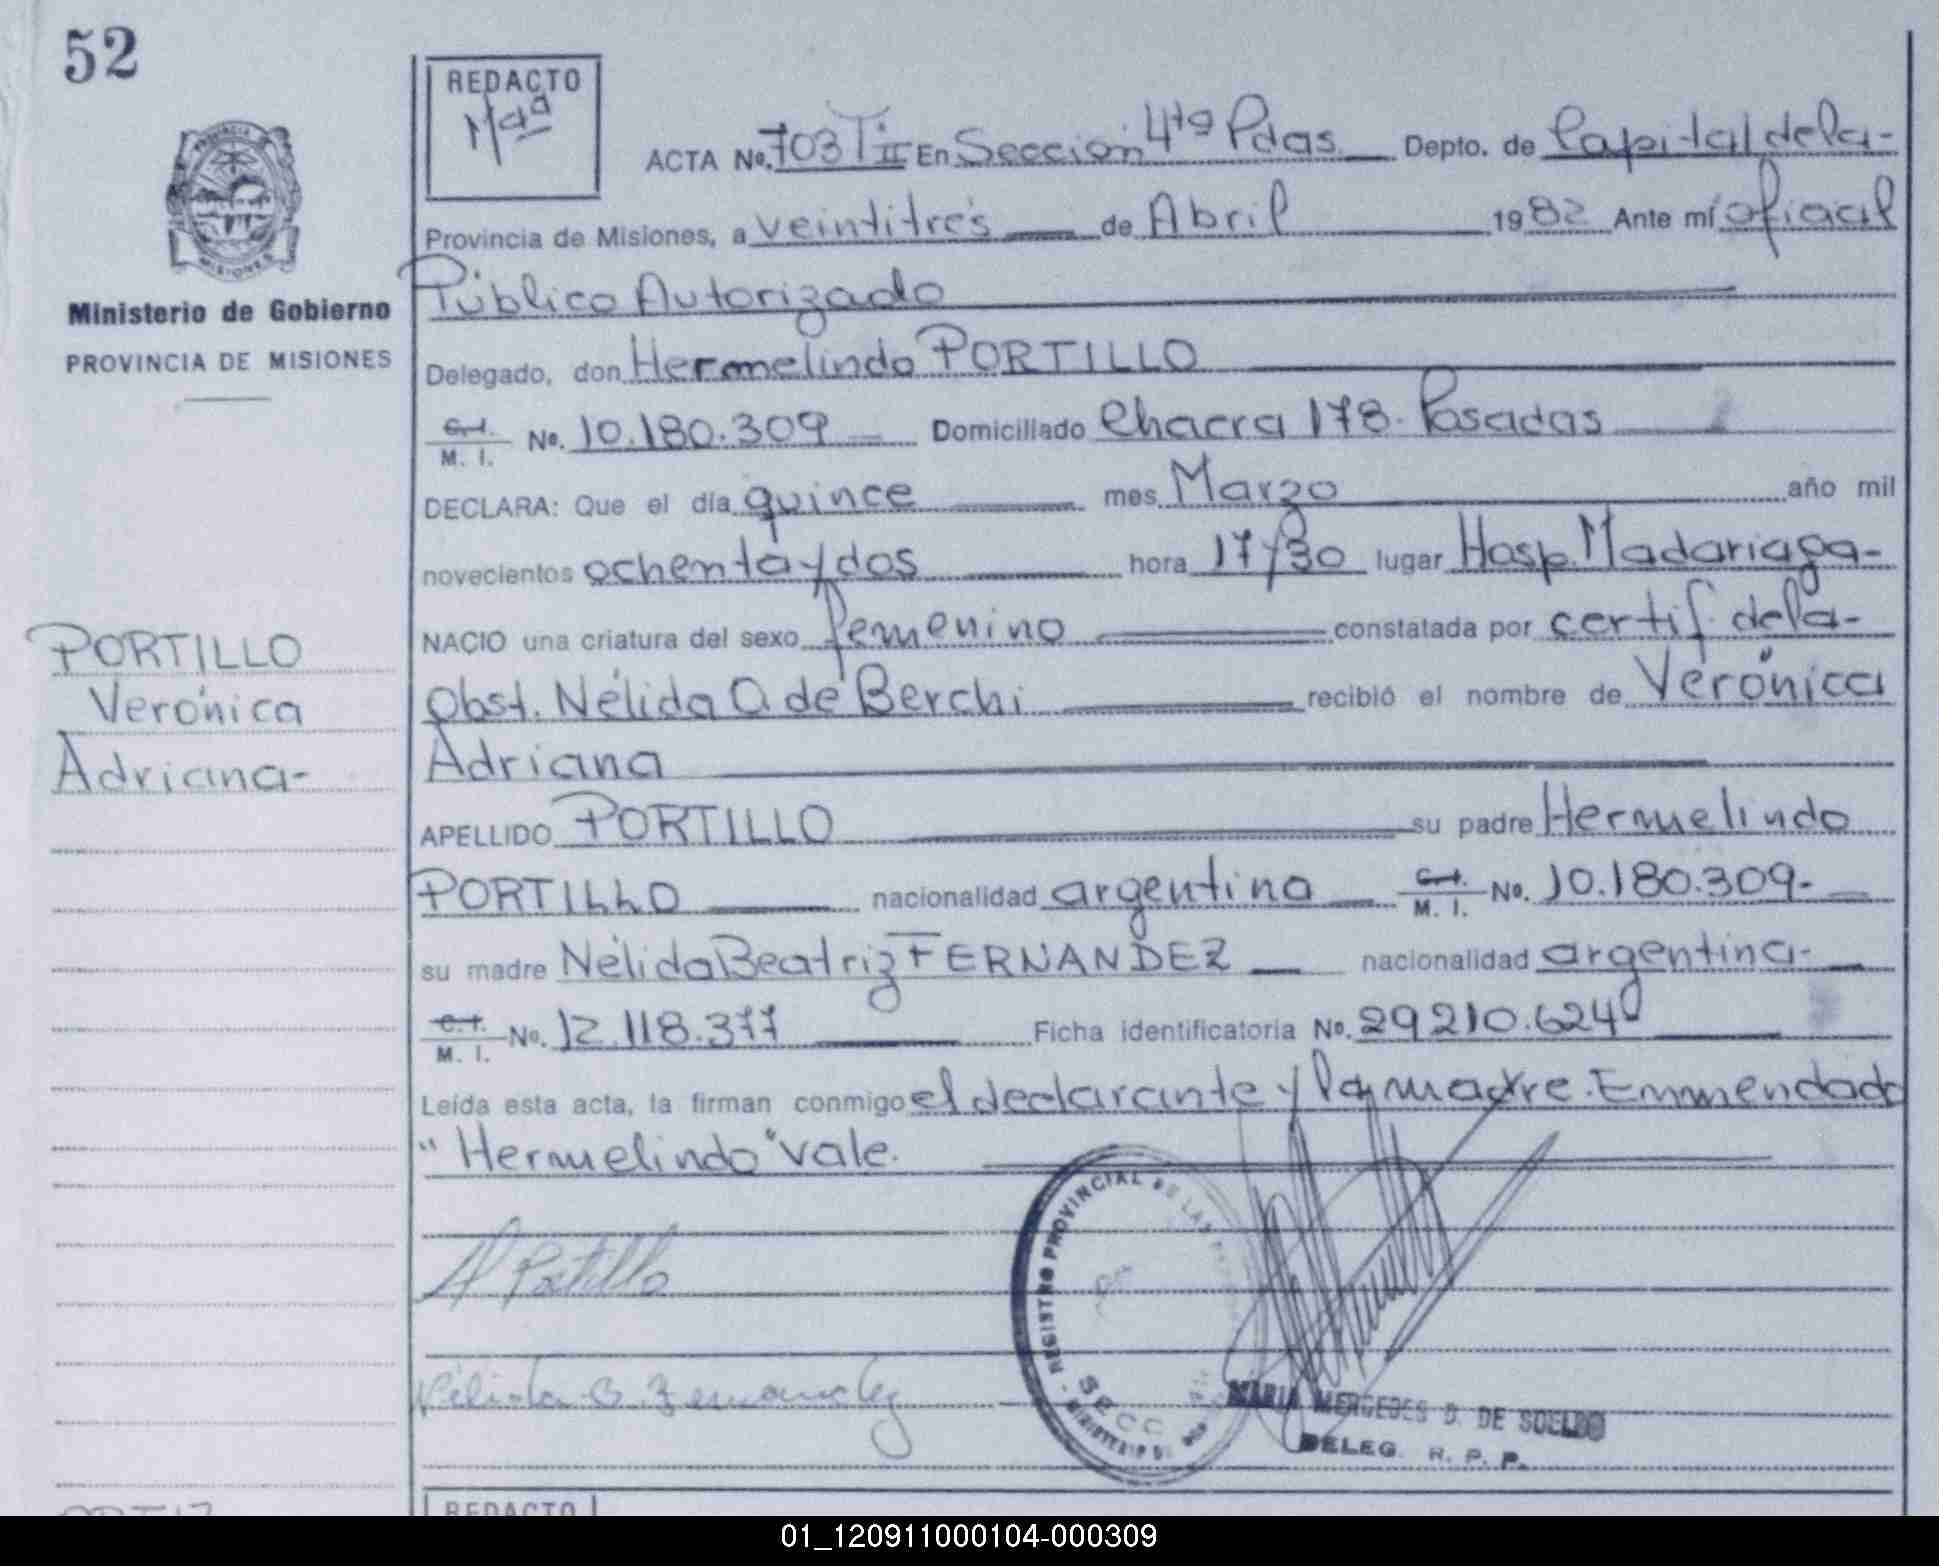 52
REDACTO
Mªª
PROVINCIA DE
MISIONES
Ministerio de Gobierno
PROVINCIA DE MISIONES
PORTILLO
Verónica
Adriana-
ACTA No. 703 T II En Sección 4ta Pdas. Depto. de Capital de la-
Provincia de Misiones, a veintitrés de Abril 1982 Ante mí oficial
Público Autorizado
Delegado, don Hermelindo PORTILLO
C.I. M. I. No. 10.180.309 Domiciliado Chacra 178. Posadas
DECLARA: Que el día quince mes Marzo año mil
novecientos ochenta y dos hora 17 y 30 lugar Hosp. Madariaga-
NACIO una criatura del sexo femenino constatada por certif. de la-
Obst. Nélida O. de Berchi recibió el nombre de Verónica
Adriana
APELLIDO PORTILLO su padre Hermelindo
PORTILLO nacionalidad argentina C.I. M. I. No. 10.180.309-
su madre Nélida Beatriz FERNANDEZ nacionalidad argentina-
C.I. M. I. No. 12.118.377 Ficha identificatoria No. 29210.624
Leída esta acta, la firman conmigo el declarante y la madre. Emmendado
"Hermelindo" vale.
H Portillo
Nélida B. Fernandez
REGISTRO PROVINCIAL DE LAS
SECC
MINISTERIO DE
MARIA MERCEDES D. DE SOELBO
DELEG. R. P. P.
REDACTO
01_120911000104-000309